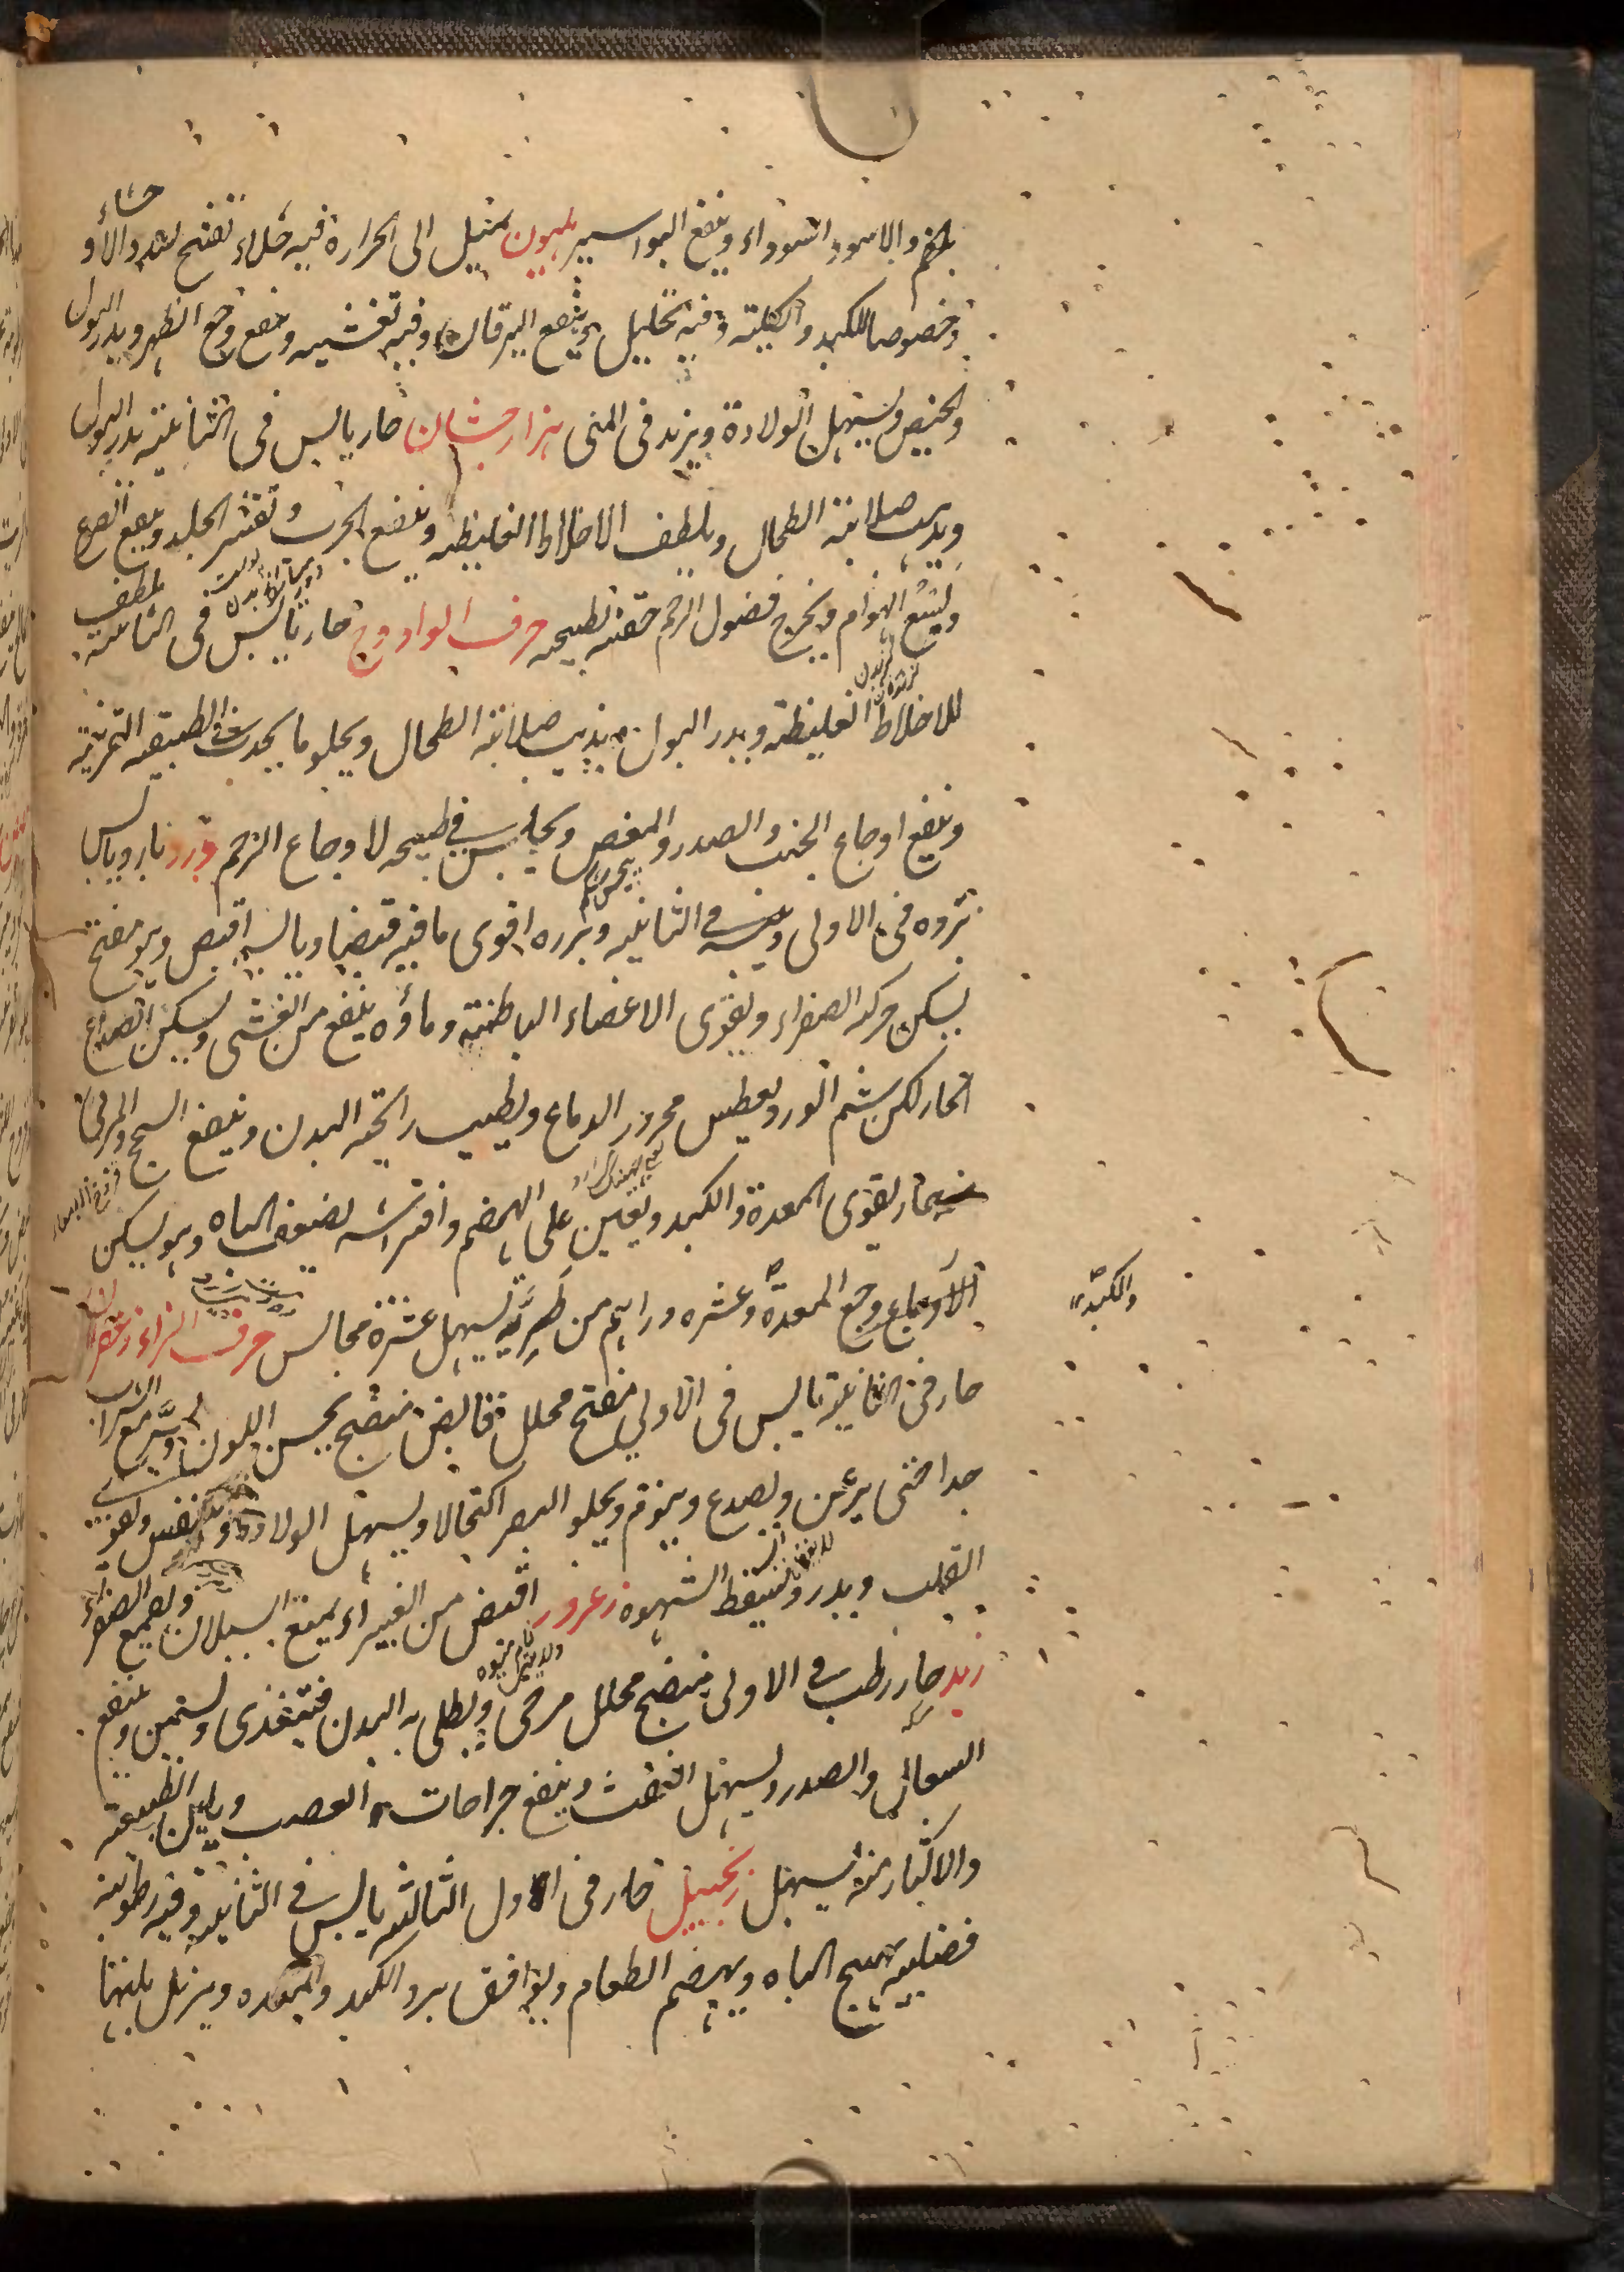 بلغم والاسود السوداء وينفع البواسير هليون يميل الى الحرارة فيه جلاء تفتح لسدد الاحشاء
وخصوصا للكبد والكلية وفيه تحليل وينفع اليرقان وفيه تغشية وينفع وجع الظهر ويدر البول
والحيض ويسهل الولادة ويزيد في المنى هزار جشان حار يابس في الثانية يدر البول
ويذيب صلابة الطحال ويلطف الاخلاط الغليظة وينفع الجرب وتقشر الجلد وينفع الصرع
ولسع الهوام ويخرج فضول الرحم حقنه بطبيخه حرف الواو وج حار يابس في الثانية ملطف
للاخلاط الغليظة ويدر البول ويذيب صلابة الطحال ويجلو ما يحدث في الطبقة القرنية
وينفع اوجاع الجنب والصدر والمغص ويجلس في طبيخه لاوجاع الرحم ورد بارد يابس
بزوه في الاولى في الثانية وبزره اقوى ما فيه قبضا ويابسه اقبض وهو مفتح
يسكن حركة الصفراء ويقوى الاعضاء الباطنة وماؤه ينفع من الغشى ويسكن الصداع
الحار لكن شم الورد يعطس محرور الدماغ ويطيب رائحة البدن وينفع السحج
يقوى المعدة والكبد ويعين على الهضم وافتراشه يضعف الباه وهو يسكن
الاوجاع وجع المعدة وعشره دراهم من طريه يسهل عشرة مجالس حرف الزاء زعفران
والكبد
حار في الثانية يابس في الاولى مفتح محلل قابض منضج يحسن اللون مع الشراب
جدا حتى يرعن ويصدع وينوم ويجلو البصر اكتحالا ويسهل الولادة والنفس ويقوى
القلب ويدر ويسقط الشهوة زعرور اقبض من الغبيراء يمنع السيلان ويقمع الصفراء
زبد حار رطب في الاولى منضج محلل مرخى ويطلى به البدن فيتغذى ويسمن وينفع
السعال والصدر ويسهل النفث وينفع جراحات العصب ويلين الطبيعة
والاكثار منه يسهل زنجبيل حار في اول الثالثة يابس في الثانية وفيه رطوبة
فضلية يهيج الباه ويهضم الطعام ويوافق برد الكبد والمعدة ويزيل بلتها